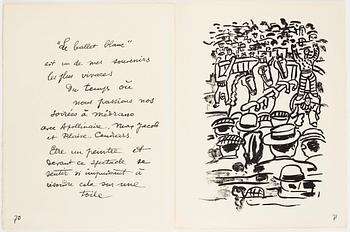 "Le ballet blanc"
est un de mes souvenirs
les plus vivaces
Du temps où
nous passions nos
soirées à médrano
avec Apollinaire, Max Jacob
et Blaise Cendrars
Etre un peintre et
devant ce spectacle se
sentir si impuissant à
réunir cela sur une
toile
70
71